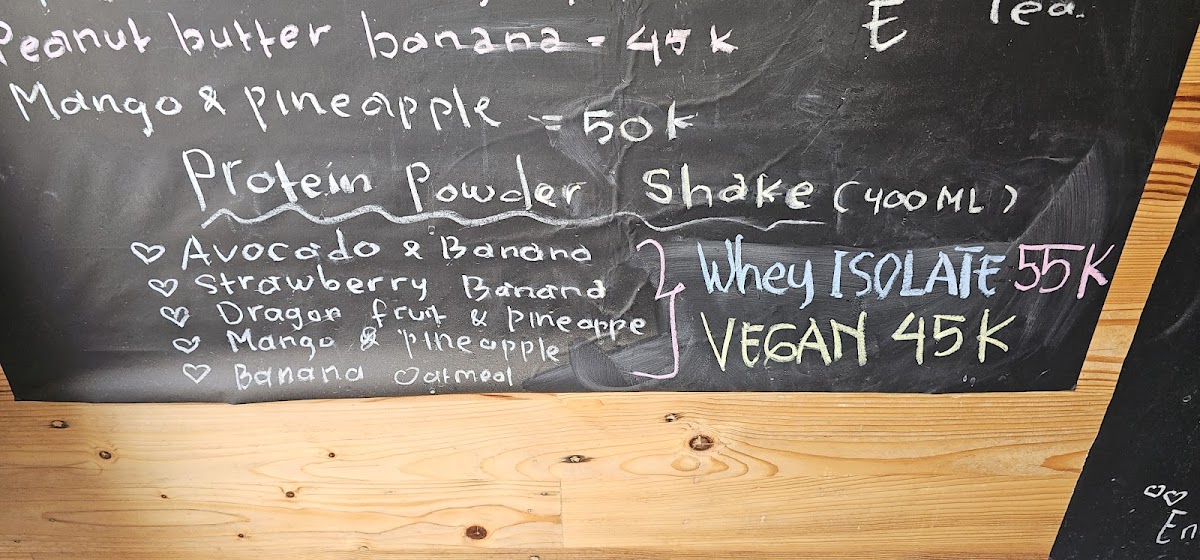 Peanut butter banana = 45 K
E Tea.
Mango & pineapple = 50 K
Protein Powder Shake (400 ML)
Avocado & Banana
Strawberry Banana
Dragon fruit & pineappe
Mango & pineapple
Banana Oatmeal
Whey ISOLATE 55K
VEGAN 45K
En